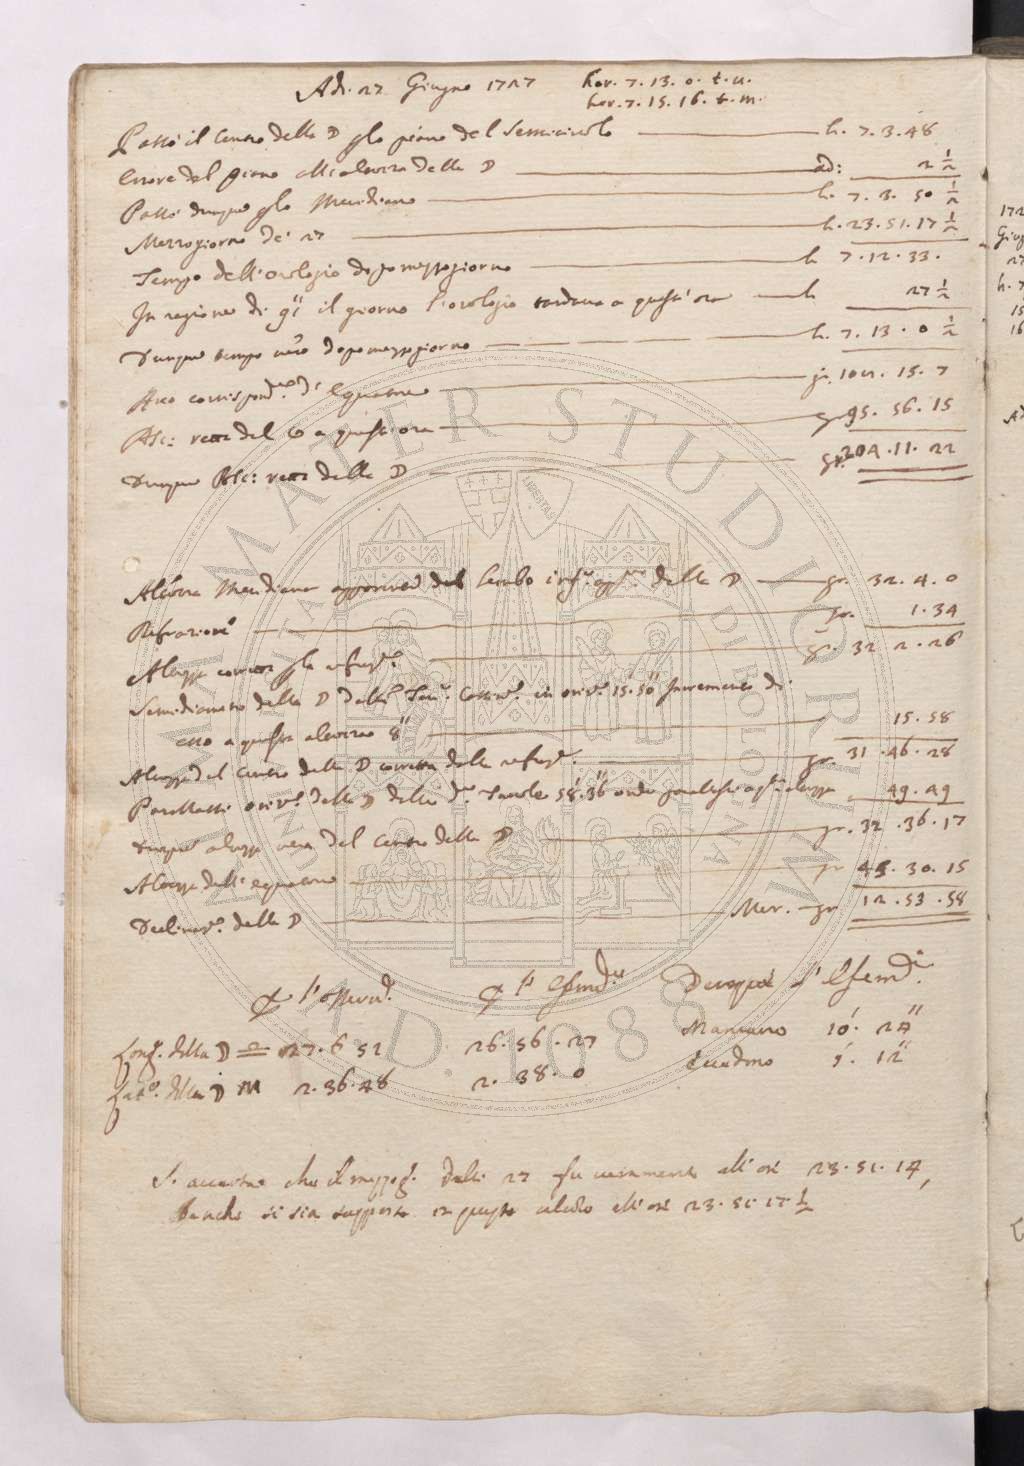 Adi. 27 Giugno 1727 hor. 7. 13. 0. t. u.
hor. 7. 15. 16. t. m.
Passò il Centro della ☽ p lo piano del Semicircolo h. 7. 3. 48
Errore del piano all'altezza della ☽ ad: 2 ½
Passò dunque p lo Meridiano h. 7. 3. 50 ½
Mezzogiorno dei 27 h. 23. 51. 17 ½
Tempo dell'orologio dopo mezzogiorno h 7. 12. 33.
In ragione di 91" il giorno l'orologio tardava a quest'ora h 27 ½
Dunque tempo vero dopo mezzogiorno h. 7. 13. 0 ½
Arco corrispond.e dell'Equatore gr. 108. 15. 7
Asc: retta del ☉ a quest'ora gr. 95. 56. 15
Dunque Asc: retta della ☽ gr. 204. 11. 22
Altezza Meridiana apparente del Lembo inf.e della ☽ gr. 32. 4. 0
Refrazione gr. 1. 34
Altezza corretta p la refraz.e gr. 32 2. 26
Semidiametro della ☽ dalle Tav.e 15' 50" Incremento di
esso a questa altezza 8" 15. 58
Altezza del Centro della ☽ corretta dalla refraz.e gr. 31. 46. 28
Parallasse oriz.e della ☽ dalle d.e Tavole 58'. 36" onde altezza 49. 49
Dunque altezza vera del Centro della ☽ gr. 32. 36. 17
Altezza dell'equatore gr 45. 30. 15
Declinaz.e della ☽ Mer. gr 12. 53. 58
p l'osservaz.e p l'Efemd.i Dunque l'Efemd.i
Long.e della ☽ ♎ 27. 6 51 26. 56. 27 Mancano 10'. 24"
Lat.e della ☽ M 2. 36. 48 2. 38. 0 Eccedono 1'. 12"
Si avverta che il mezzog. delli 27 fu veramente all'ore 23. 51. 14,
benche si sia supposto in questo calcolo all'ore 23. 51. 17 ½
ALMA MATER STUDIORUM
UNIVERSITÀ DI BOLOGNA
A.D. 1088
LIBERTAS